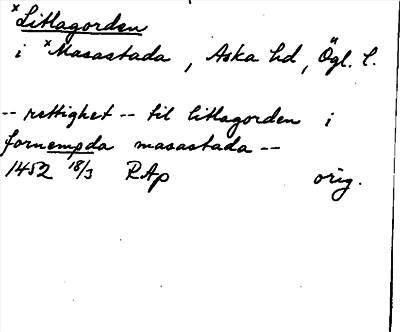 ×Litlagorden
i ×Masastada, Aska hd, Ögl. l.
-- rettighet -- til litlagorden i
fornempda masastada --
1452 18/3 RAp orig.